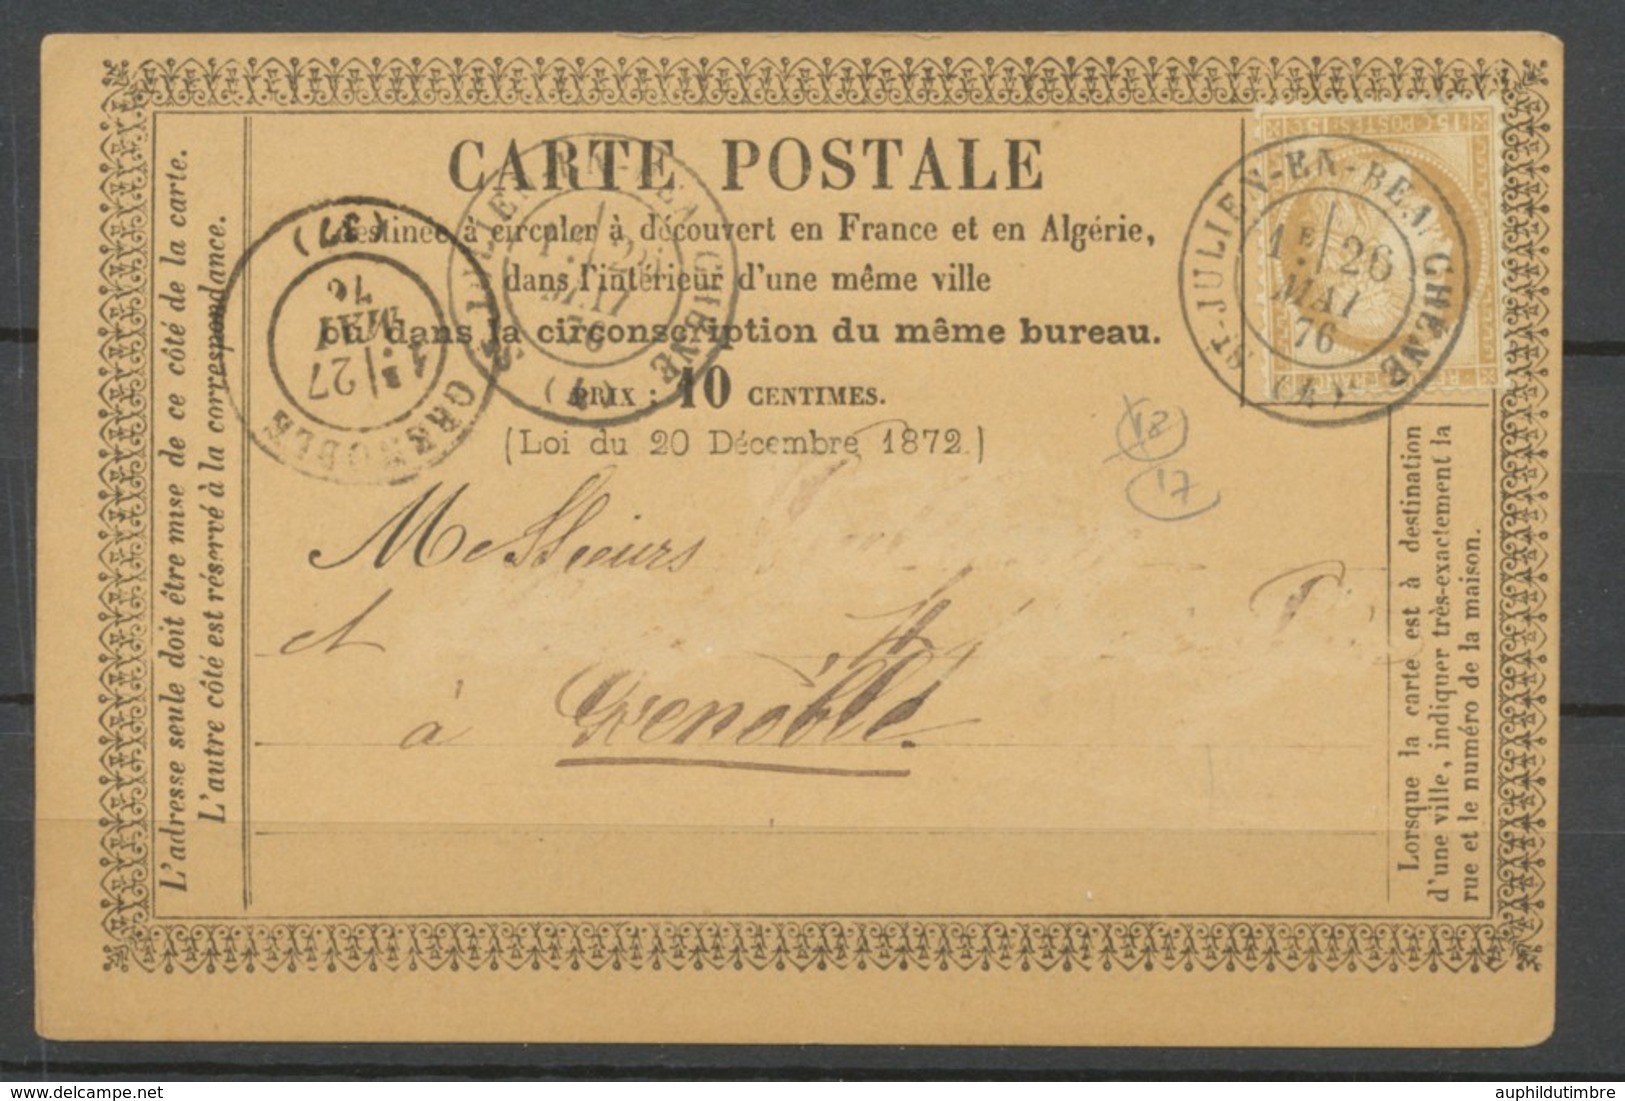 CARTE POSTALE
destinée à circuler à découvert en France et en Algérie,
dans l'intérieur d'une même ville
ou dans la circonscription du même bureau.
PRIX : 10 CENTIMES.
(Loi du 20 Décembre 1872.)
L'adresse seule doit être mise de ce côté de la carte.
L'autre côté est réservé à la correspondance.
15 C POSTES 15 C
ST-JULIEN-EN-BEAUCHÊNE
1E 26
MAI
76
(4)
GRENOBLE
1E 27
MAI
76
(37)
12
17
Messieurs
et
à Grenoble.
Lorsque la carte est à destination
d'une ville, indiquer très-exactement la
rue et le numéro de la maison.
auphildutimbre.com